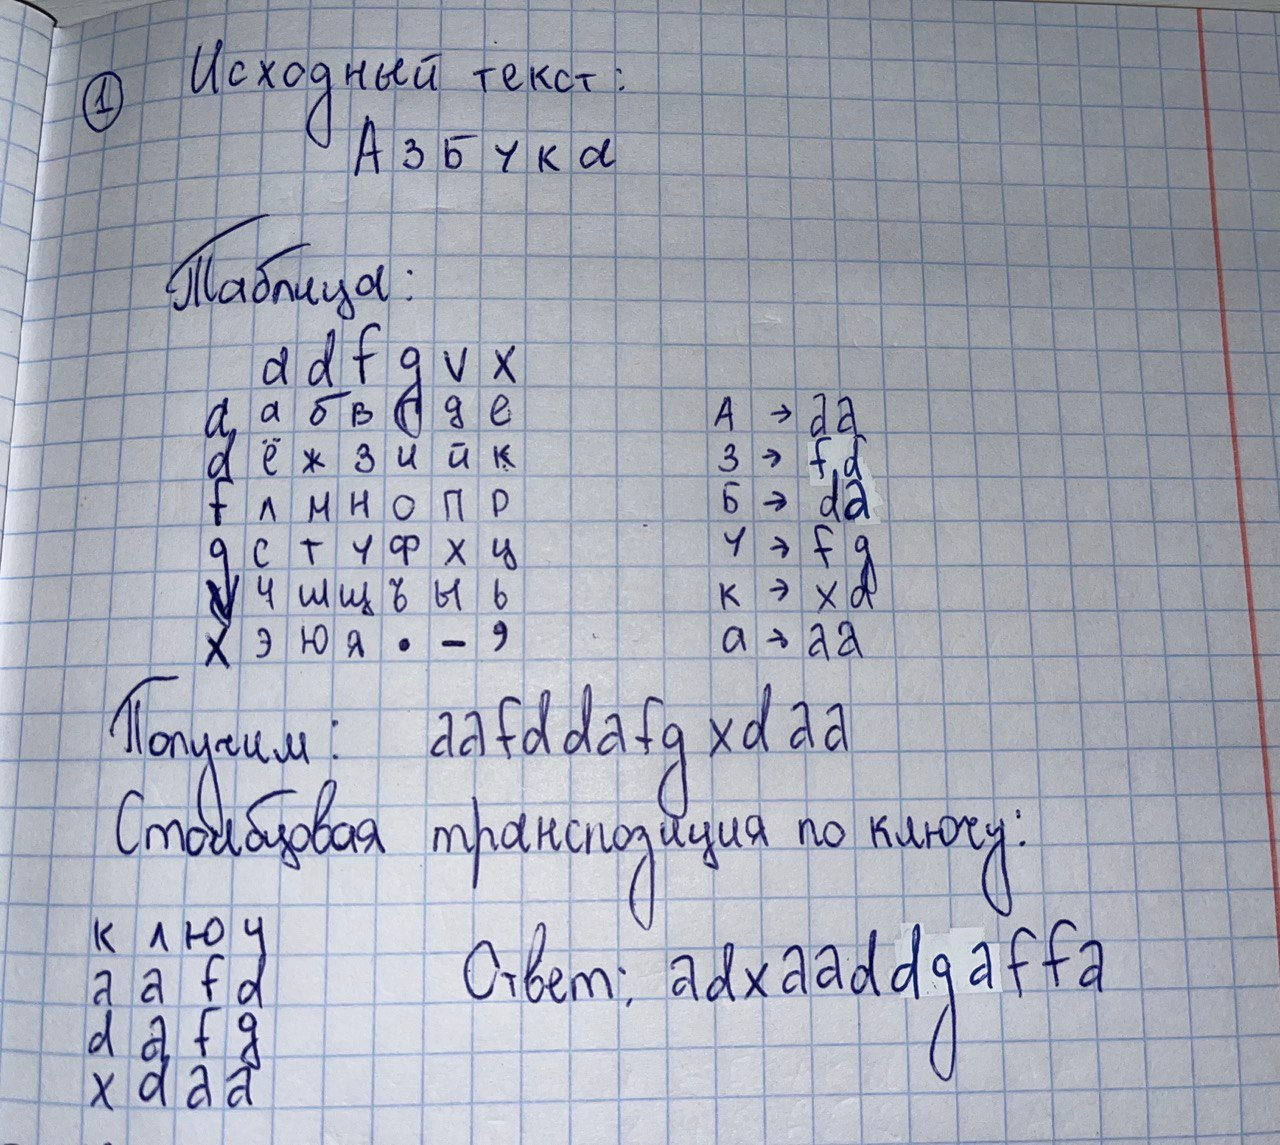 ① Исходный текст:
Азбука
Таблица:
a d f g v x
a а б в г д е
d ё ж з и й к
f л м н о п р
g с т у ф х ц
v ч ш щ ъ ы ь
x э ю я . – ,
А → aa
З → fd
Б → da
У → fg
к → xd
а → aa
Получим: aafddafgxdaa
Столбцовая транспозиция по ключу:
к л ю ч
a a f d
d a f g
x d a a
Ответ: adxaaddgaffa